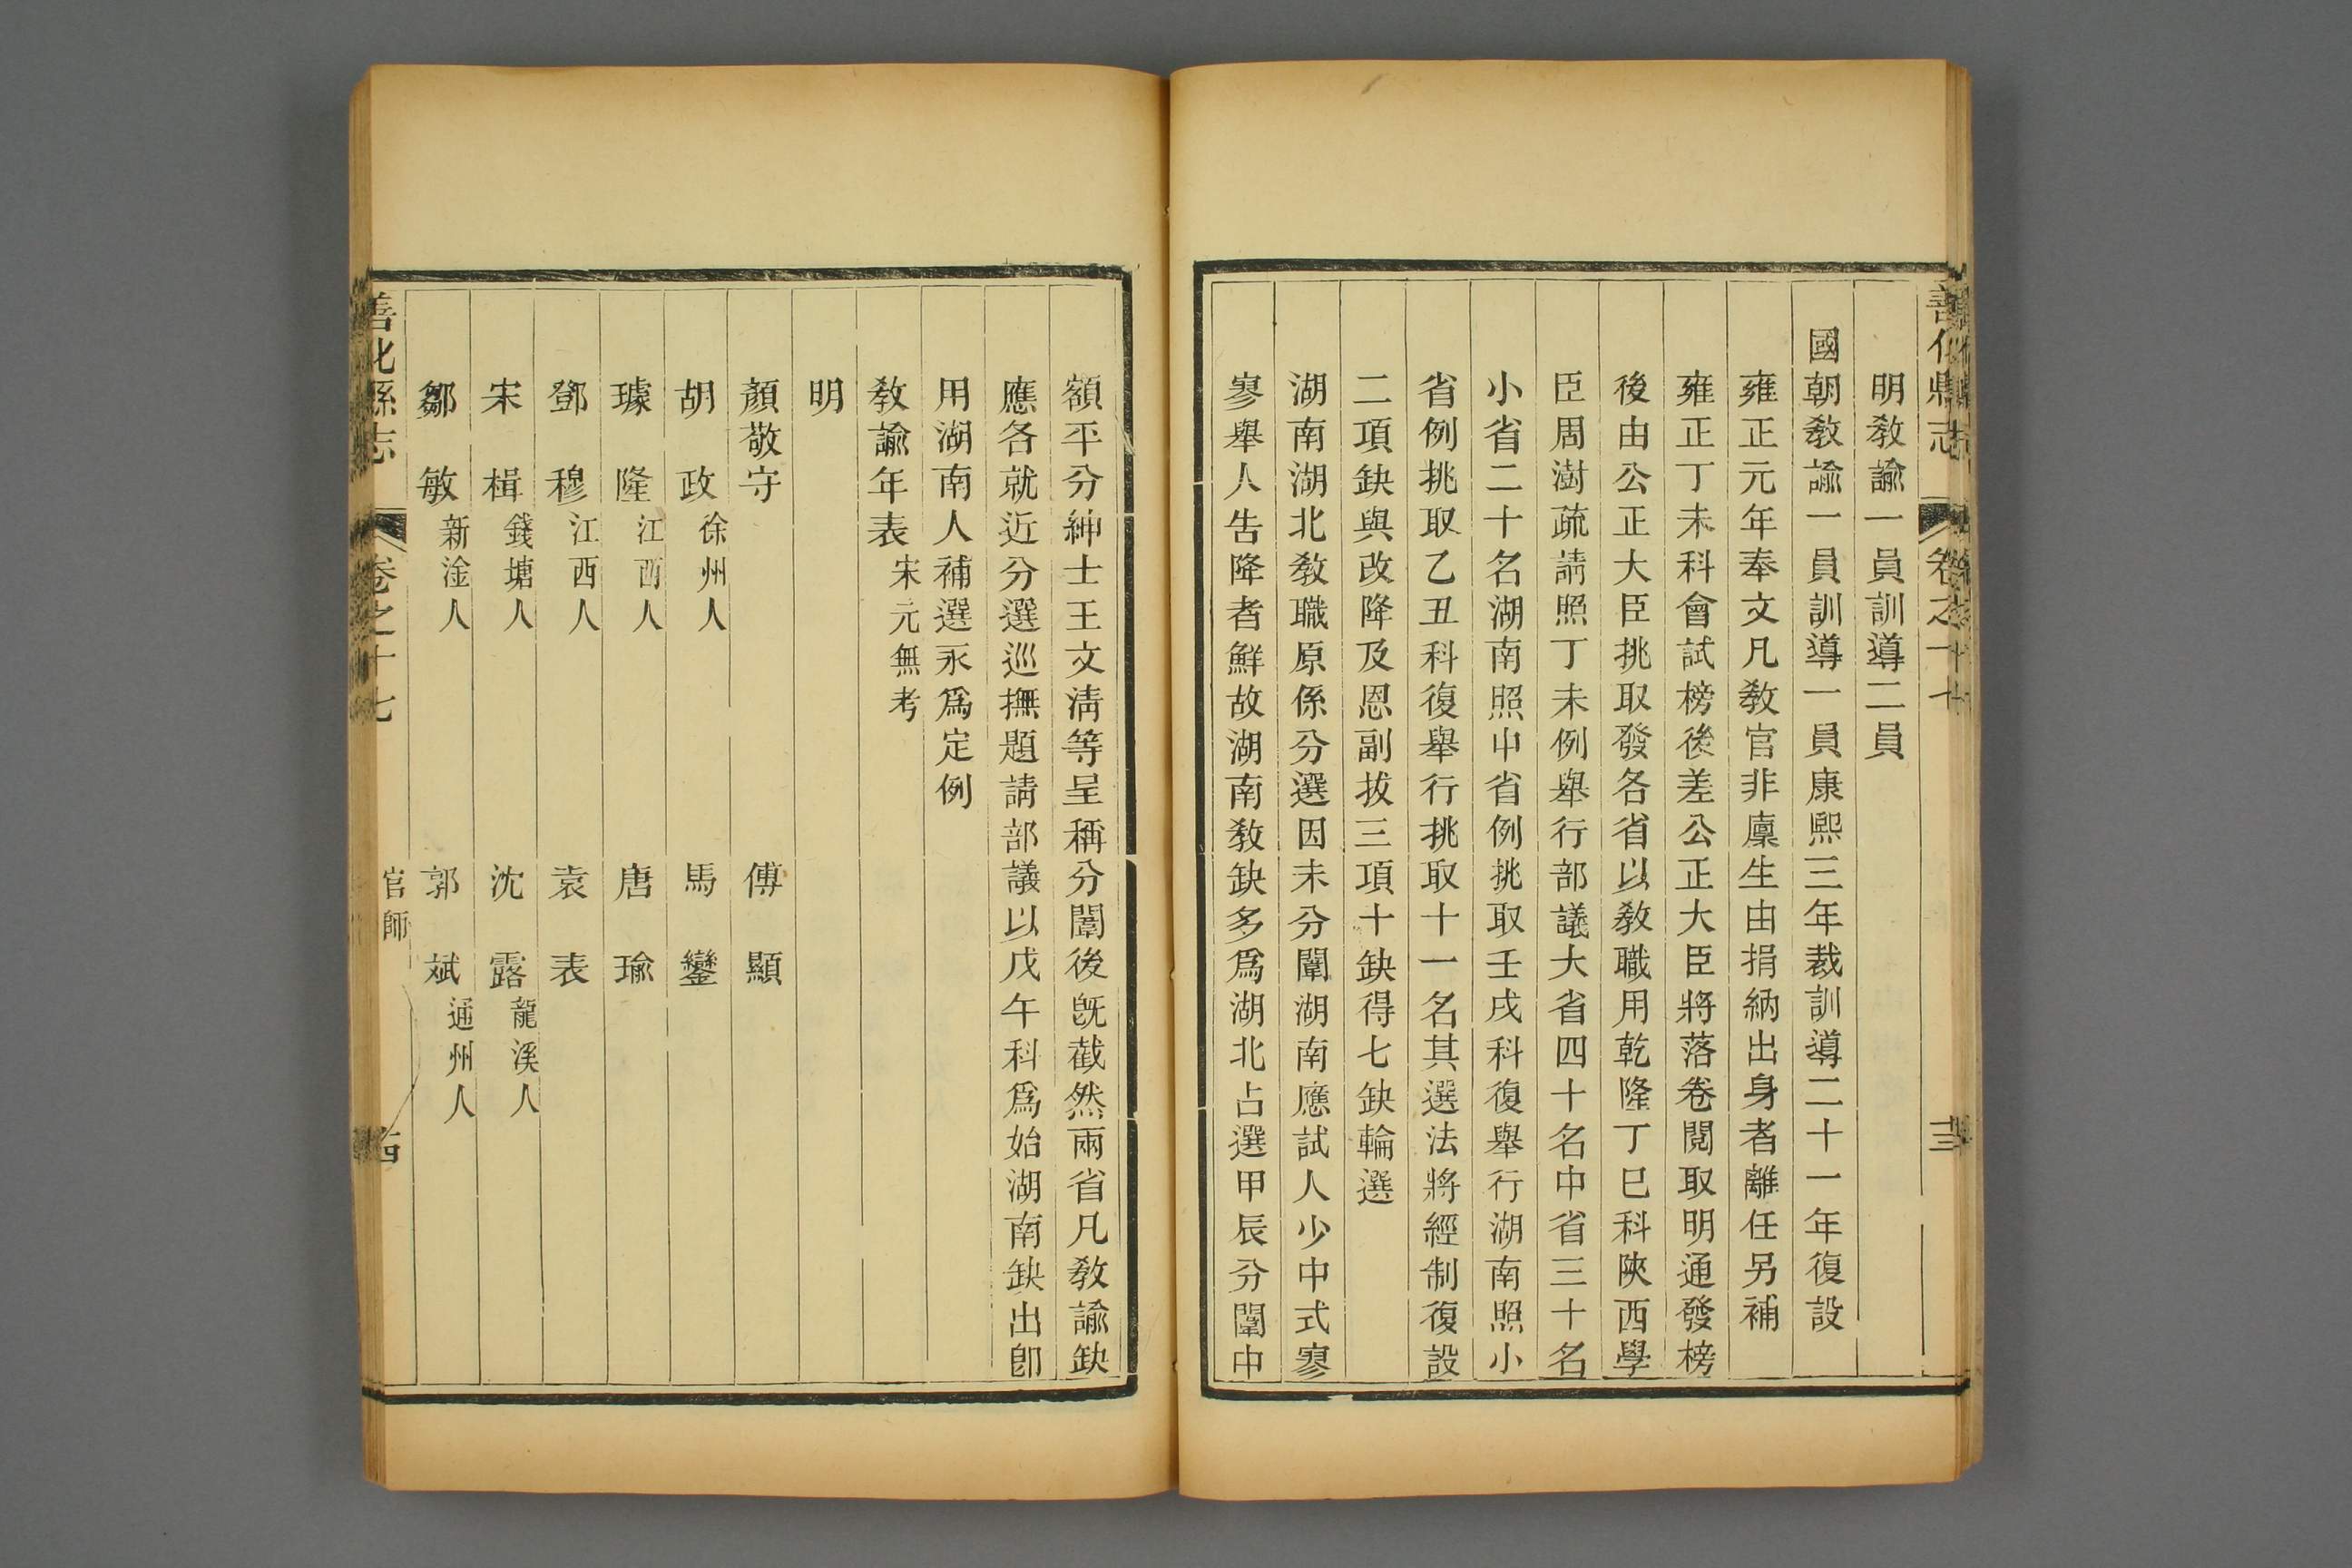 善化縣志 卷之十七 十三
明教諭一員訓導二員
國朝教諭一員訓導一員康熙三年裁訓導二十一年復設
雍正元年奉文凡教官非廩生由捐納出身者離任另補
雍正丁未科會試榜後差公正大臣將落卷閱取明通發榜
後由公正大臣挑取發各省以教職用乾隆丁巳科陝西學
臣周澍疏請照丁未例舉行部議大省四十名中省三十名
小省二十名湖南照中省例挑取壬戌科復舉行湖南照小
省例挑取乙丑科復舉行挑取十一名其選法將經制復設
二項缺與改降及恩副拔三項十缺得七缺輪選
湖南湖北教職原係分選因未分闈湖南應試人少中式寥
寥舉人告降者鮮故湖南教缺多爲湖北占選甲辰分闈中
額平分紳士王文清等呈稱分闈後旣截然兩省凡教諭缺
應各就近分選巡撫題請部議以戊午科爲始湖南缺出卽
用湖南人補選永爲定例
教諭年表 宋元無考
明
顏敬守 傅顯
胡政 徐州人 馬鑾
璩隆 江西人 唐瑜
鄧穆 江西人 袁表
宋楫 錢塘人 沈露 龍溪人
鄒敏 新淦人 郭斌 通州人
善化縣志 卷之十七 官師